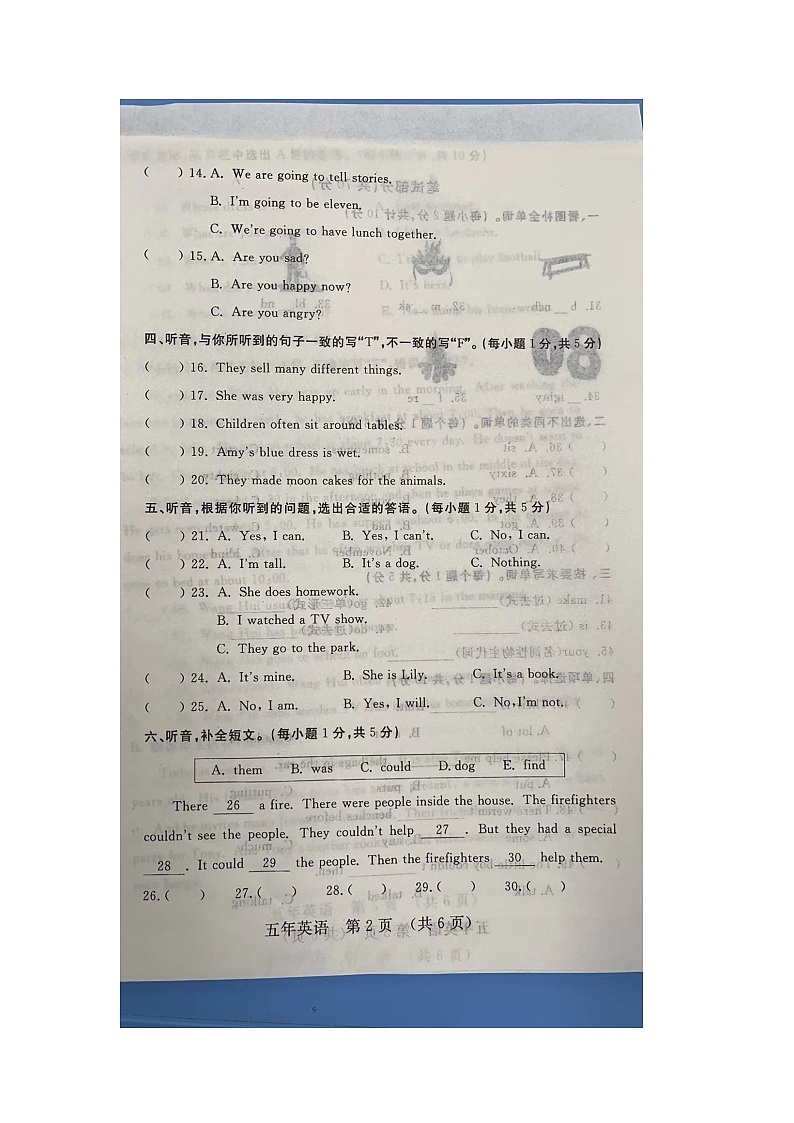 ( ) 14. A. We are going to tell stories.
B. I'm going to be eleven.
C. We're going to have lunch together.
( ) 15. A. Are you sad?
B. Are you happy now?
C. Are you angry?
四、听音,与你所听到的句子一致的写“T”,不一致的写“F”。(每小题1分,共5分)
( ) 16. They sell many different things.
( ) 17. She was very happy.
( ) 18. Children often sit around tables.
( ) 19. Amy's blue dress is wet.
( ) 20. They made moon cakes for the animals.
五、听音,根据你听到的问题,选出合适的答语。(每小题1分,共5分)
( ) 21. A. Yes, I can. B. Yes, I can't. C. No, I can.
( ) 22. A. I'm tall. B. It's a dog. C. Nothing.
( ) 23. A. She does homework.
B. I watched a TV show.
C. They go to the park.
( ) 24. A. It's mine. B. She is Lily. C. It's a book.
( ) 25. A. No, I am. B. Yes, I will. C. No,I'm not.
六、听音,补全短文。(每小题1分,共5分)
A. them B. was C. could D. dog E. find
There 26 a fire. There were people inside the house. The firefighters
couldn't see the people. They couldn't help 27 . But they had a special
28 . It could 29 the people. Then the firefighters 30 help them.
26.( ) 27.( ) 28.( ) 29.( ) 30.( )
五年英语 第2页 (共6页)